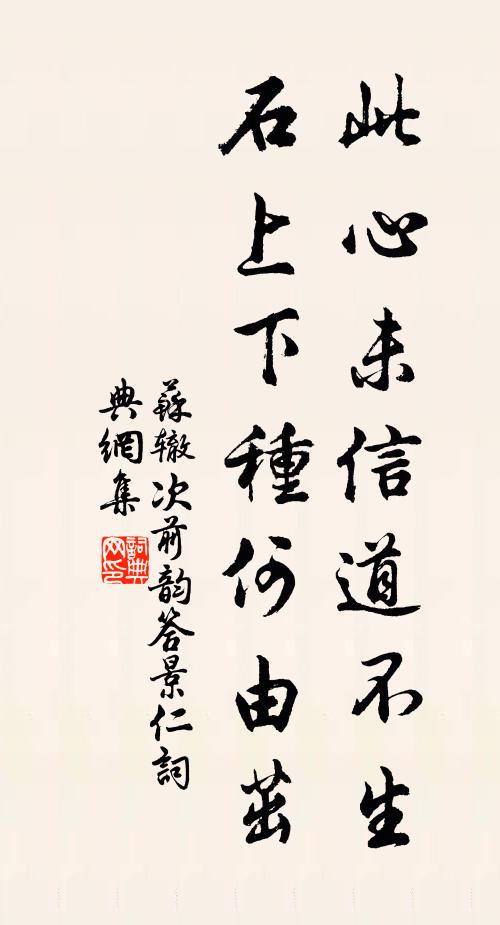 此心未信道不生
石上下種何由茁
蘇辙次前韵答景仁詞
典網集
詞典
网印